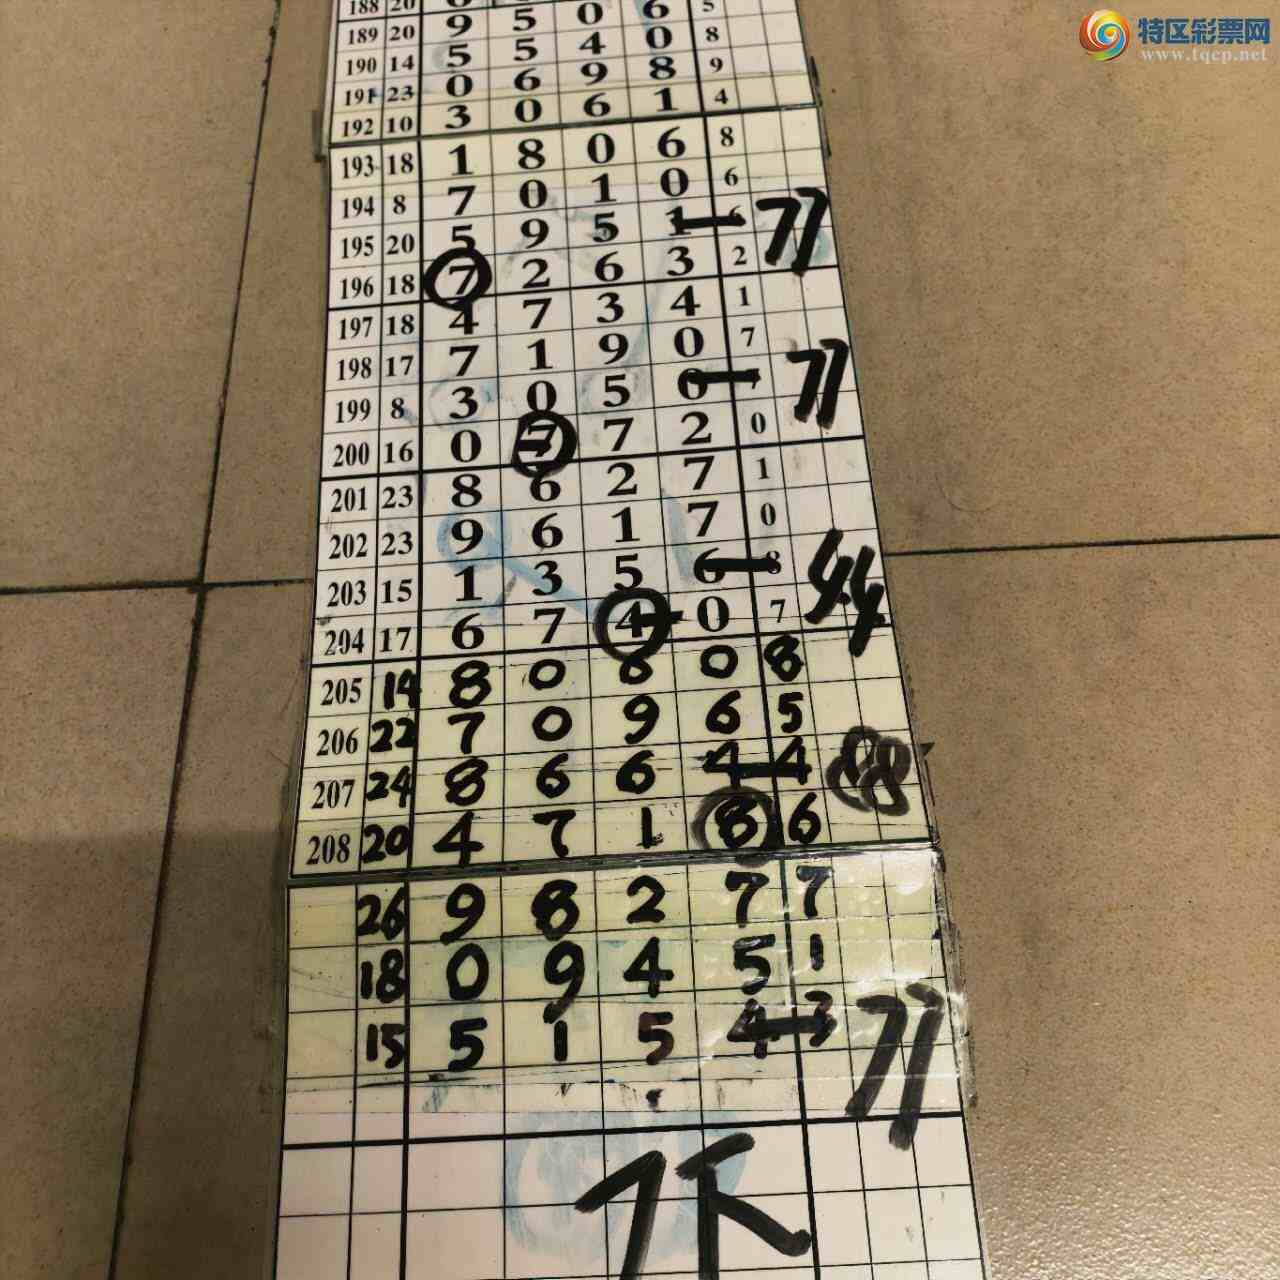 特区彩票网
www.tqcp.net
188 20 5
189 20 9 5 0 6 8
190 14 5 5 4 0 9
191 23 0 6 9 8 4
192 10 3 0 6 1
193 18 1 8 0 6 8
194 8 7 0 1 0 6
195 20 5 9 5 1 6 77
196 18 7 2 6 3 2
197 18 4 7 3 4 1
198 17 7 1 9 0 7
199 8 3 0 5 0 7 77
200 16 0 7 7 2 0
201 23 8 6 2 7 1
202 23 9 6 1 7 0
203 15 1 3 5 6 8 44
204 17 6 7 4 0 7
205 14 8 0 6 0 8
206 22 7 0 9 6 5
207 24 8 6 6 4 4 88
208 20 4 7 1 8 6
26 9 8 2 7 7
18 0 9 4 5 1
15 5 1 5 4 3 77
7下